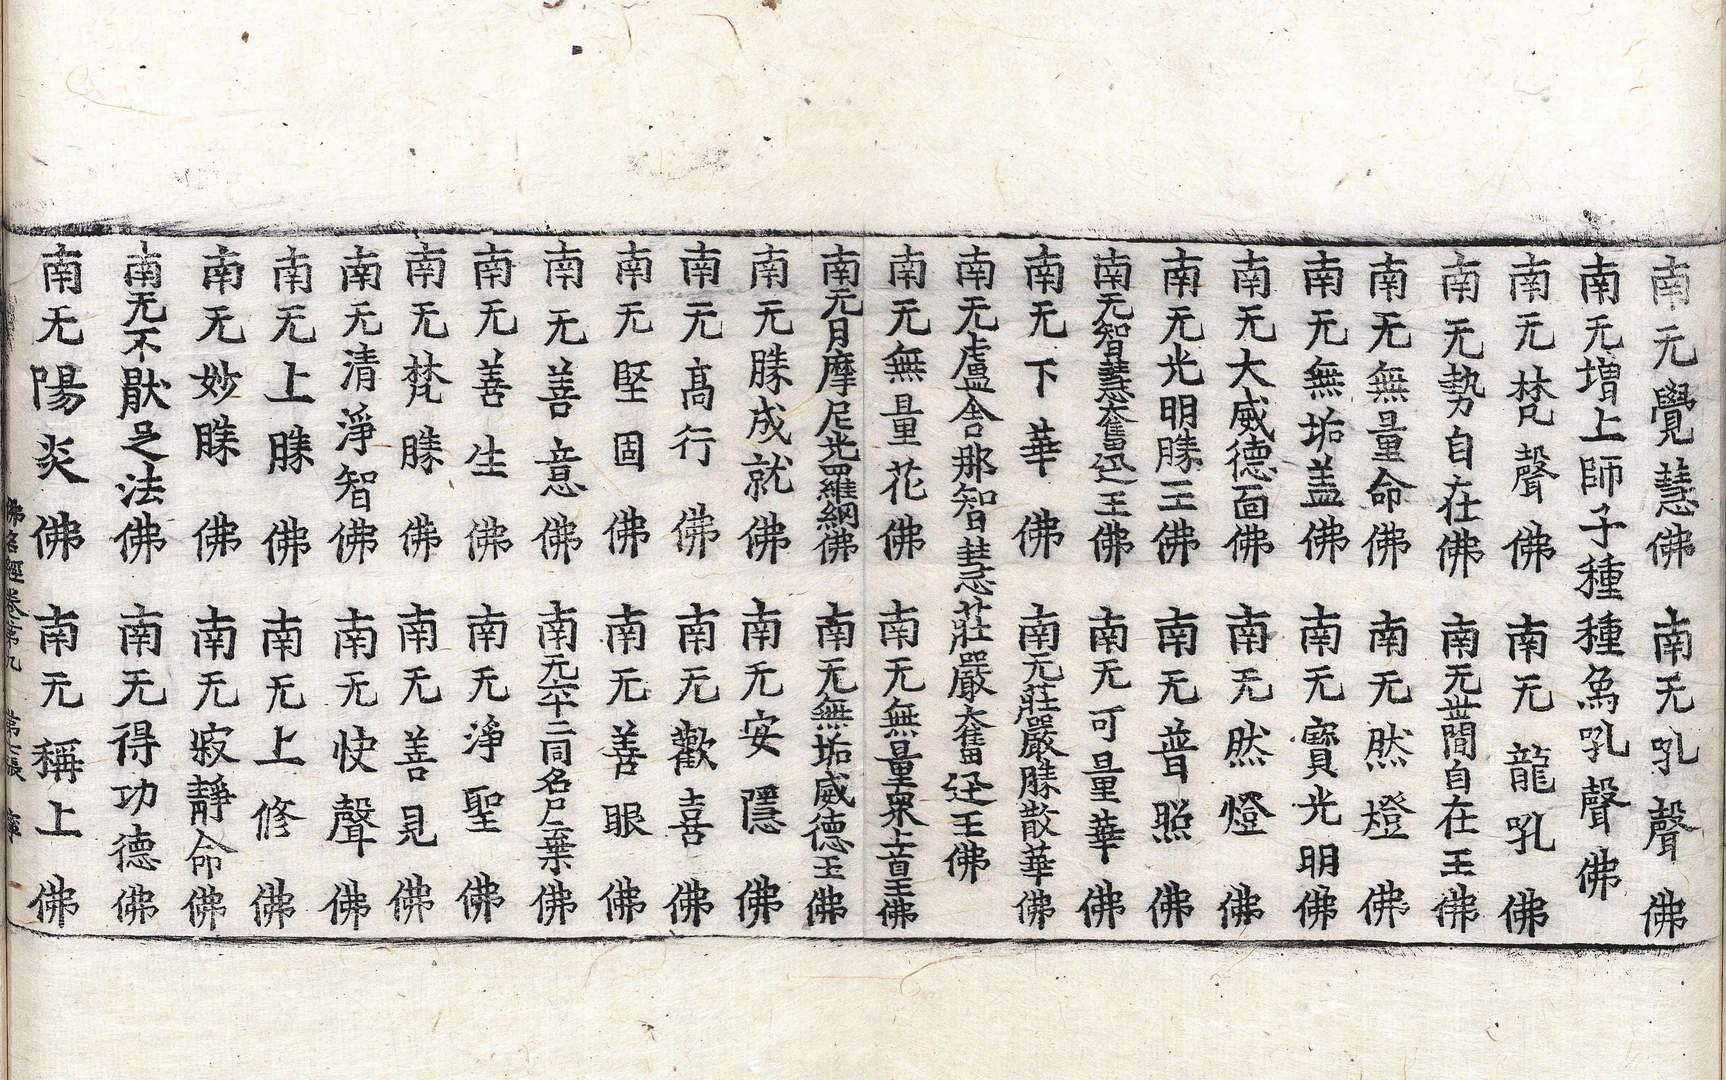 南无覺慧佛 南无吼聲佛
南无增上師子種種爲吼聲佛
南无梵聲佛 南无龍吼佛
南无勢自在佛 南无世間自在王佛
南无無量命佛 南无然燈佛
南无無垢盖佛 南无寶光明佛
南无大威德面佛 南无然燈佛
南无光明勝王佛 南无普照佛
南无智慧奮迅王佛 南无可量華佛
南无下華佛 南无莊嚴勝散華佛
南无盧舍那智慧莊嚴奮迅王佛
南无無量花佛 南无無量眾上首王佛
南无月摩尼光羅維網佛 南无無垢威德王佛
南无勝成就佛 南无安隱佛
南无高行佛 南无歡喜佛
南无堅固佛 南无善眼佛
南无善意佛 南无六十二同名尸棄佛
南无善生佛 南无淨聖佛
南无梵勝佛 南无善見佛
南无清淨智佛 南无快聲佛
南无上勝佛 南无上修佛
南无妙勝佛 南无寂靜命佛
南无不猒足法佛 南无得功德佛
南无陽炎佛 南无稱上佛
佛名經卷第九 第七張